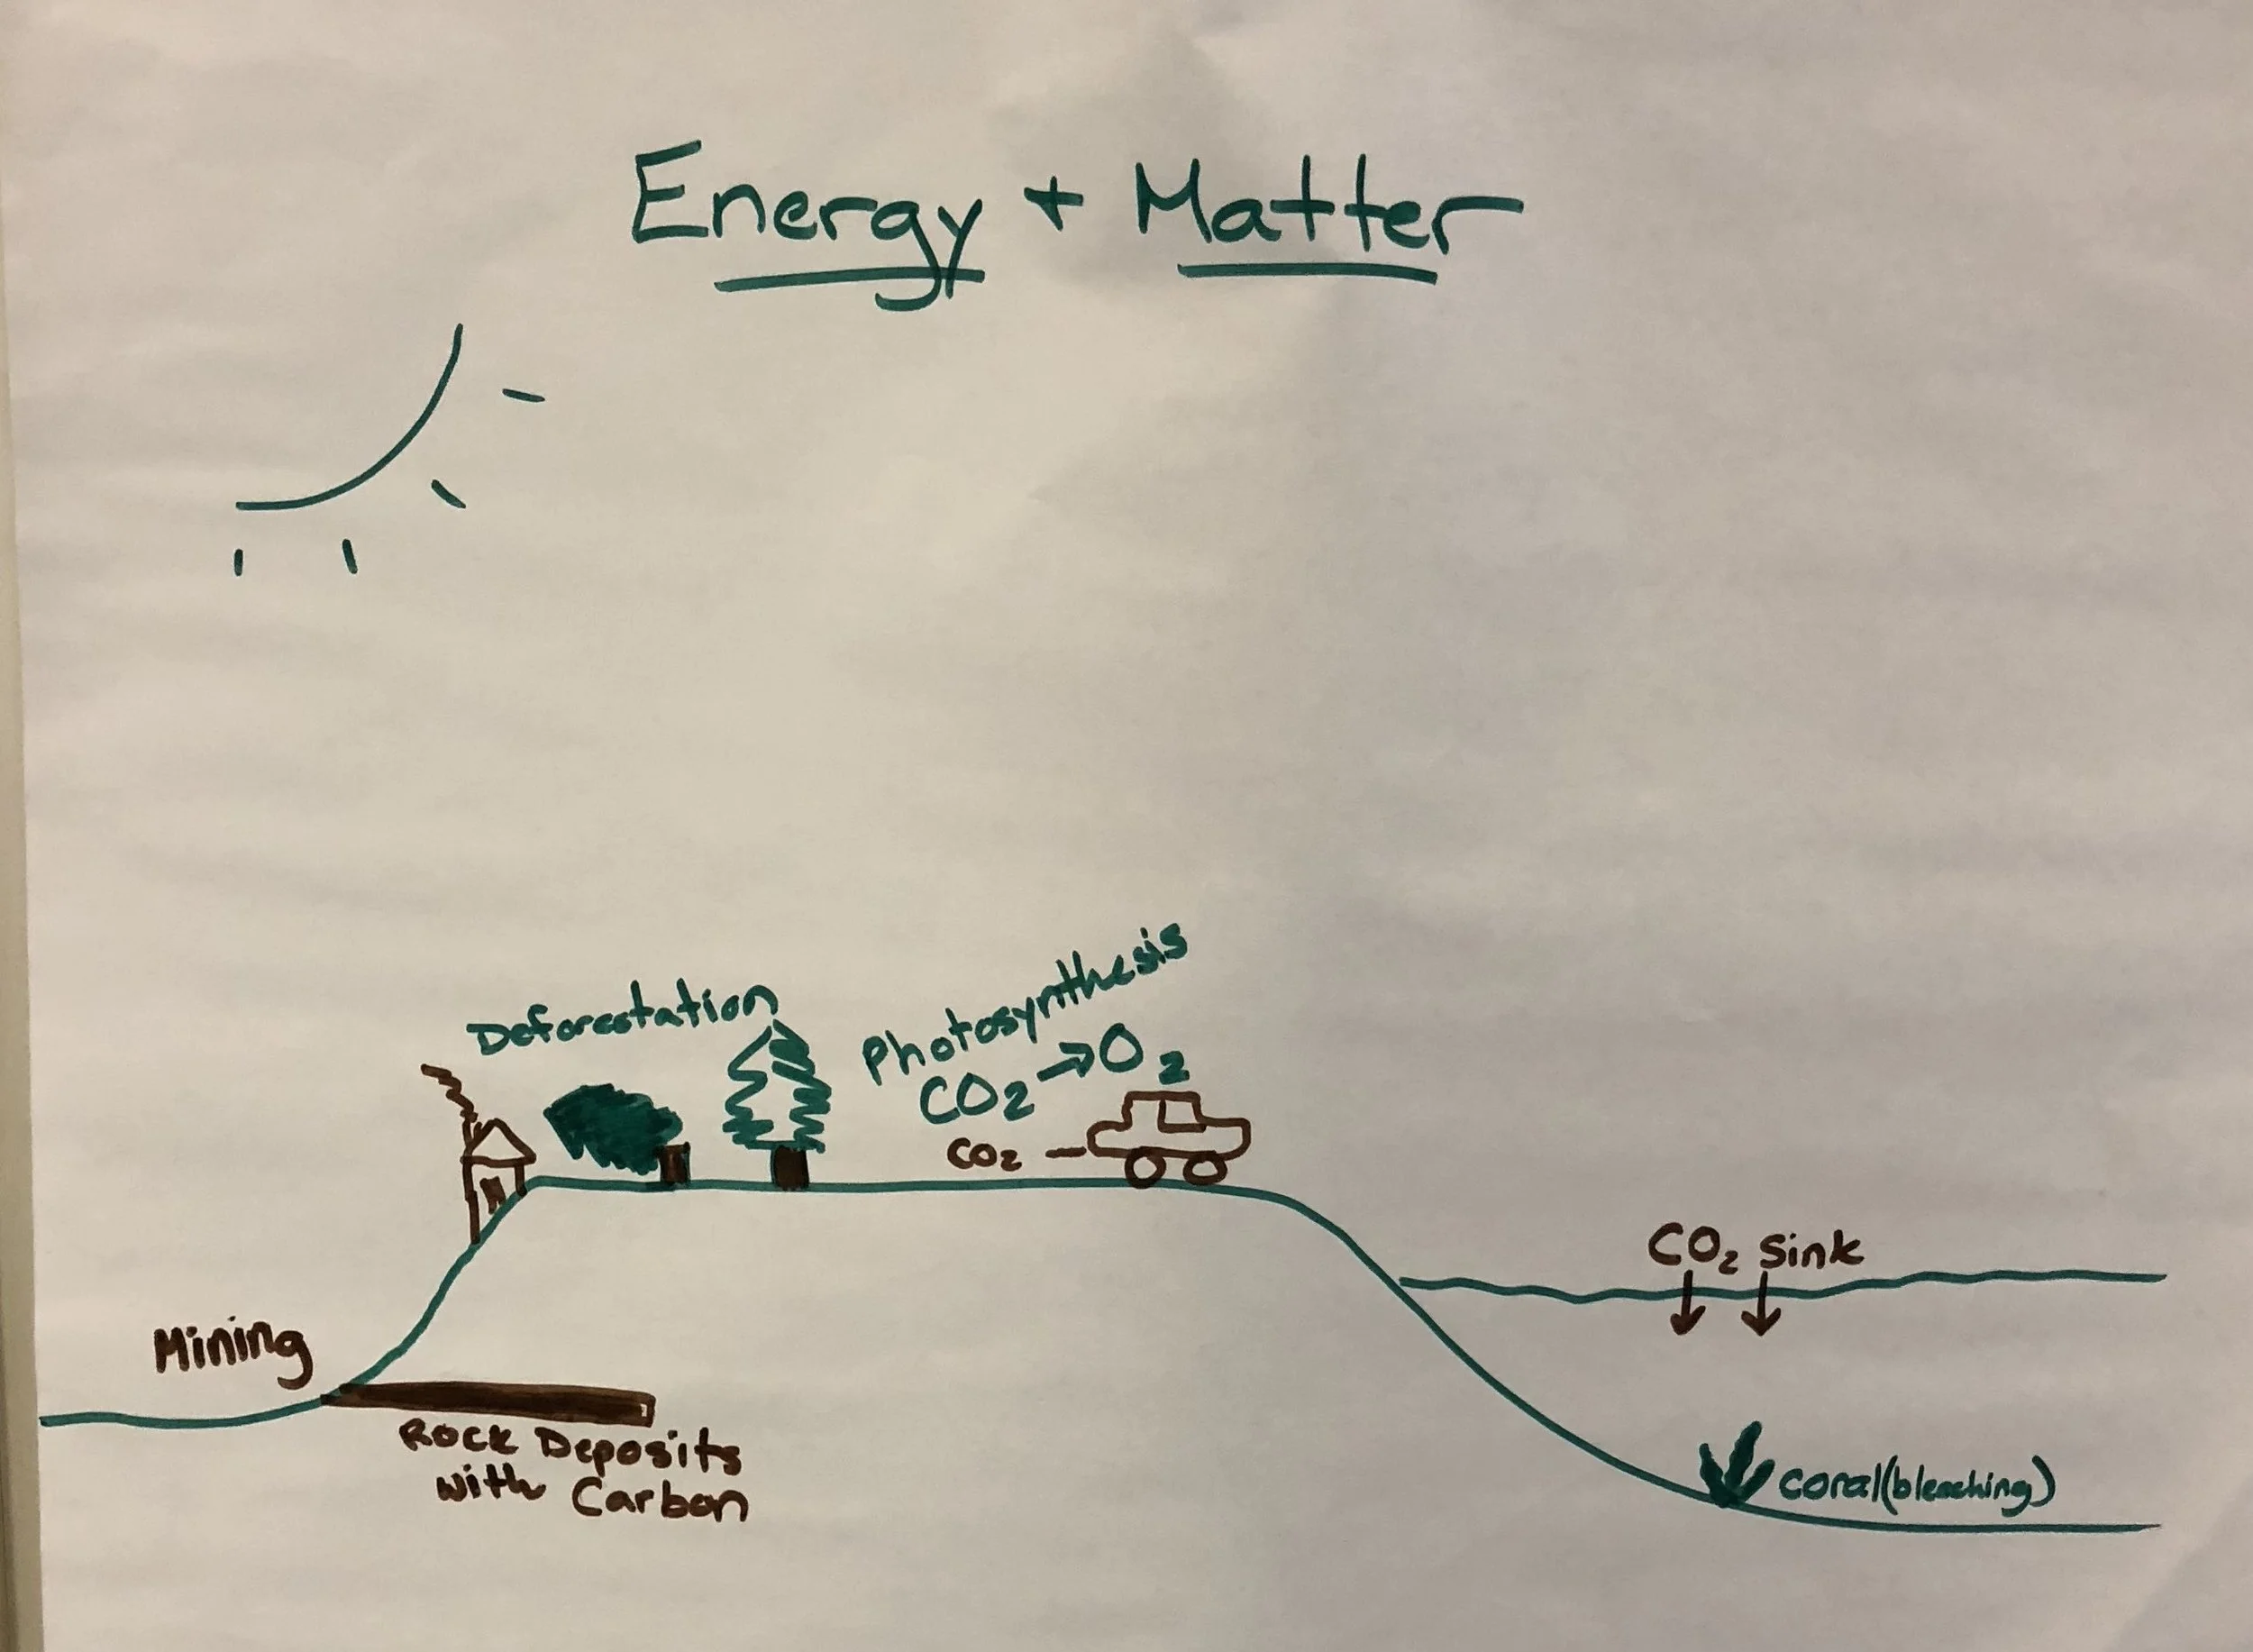 Energy + Matter
Deforestation
Photosynthesis
CO₂ → O₂
CO₂
CO₂ Sink
Mining
Rock Deposits
with Carbon
coral (bleaching)